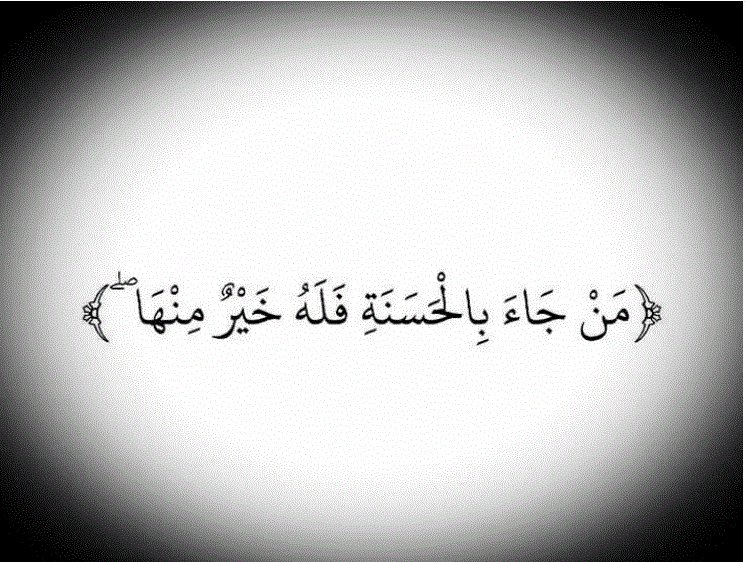 ﴿ مَنْ جَاءَ بِالْحَسَنَةِ فَلَهُ خَيْرٌ مِنْهَا ۖ ﴾